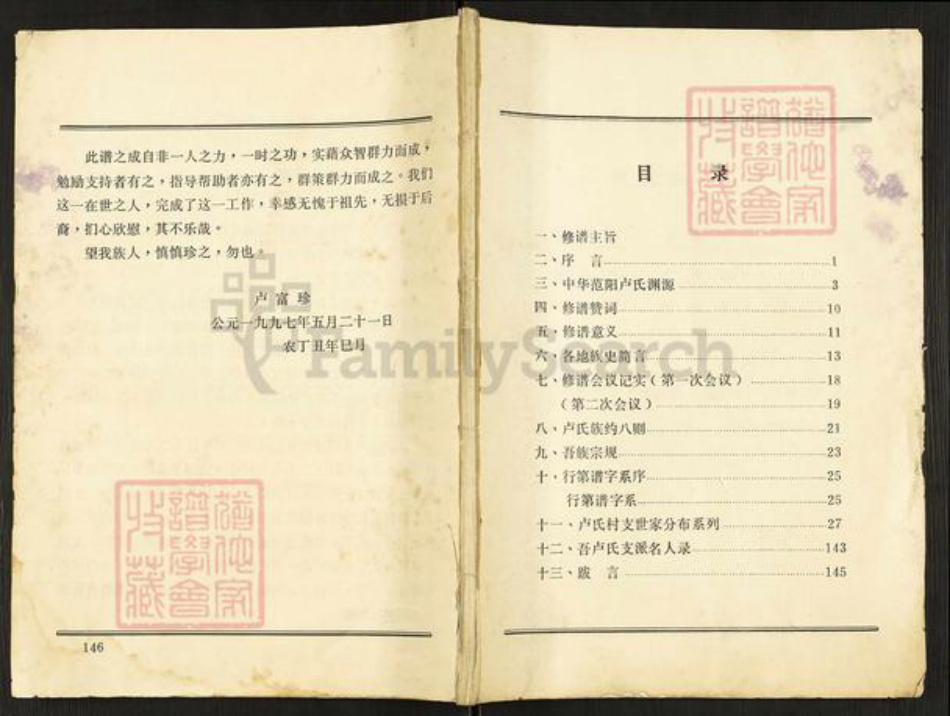 此谱之成自非一人之力，一时之功，实藉众智群力而成，
勉励支持者有之，指导帮助者亦有之，群策群力而成之。我们
这一在世之人，完成了这一工作，幸感无愧于祖先，无损于后
裔，扪心欣慰，其不乐哉。
望我族人，慎慎珍之，勿也。
卢富珍
公元一九九七年五月二十一日
农丁丑年巳月
146
FamilySearch
目 录
一、修谱主旨
二、序 言 1
三、中华范阳卢氏渊源 3
四、修谱赞词 10
五、修谱意义 11
六、各地族史简言 13
七、修谱会议记实（第一次会议） 18
（第二次会议） 19
八、卢氏族约八则 21
九、吾族宗规 23
十、行第谱字系序 25
行第谱字系 25
十一、卢氏村支世家分布系列 27
十二、吾卢氏支派名人录 143
十三、跋 言 145